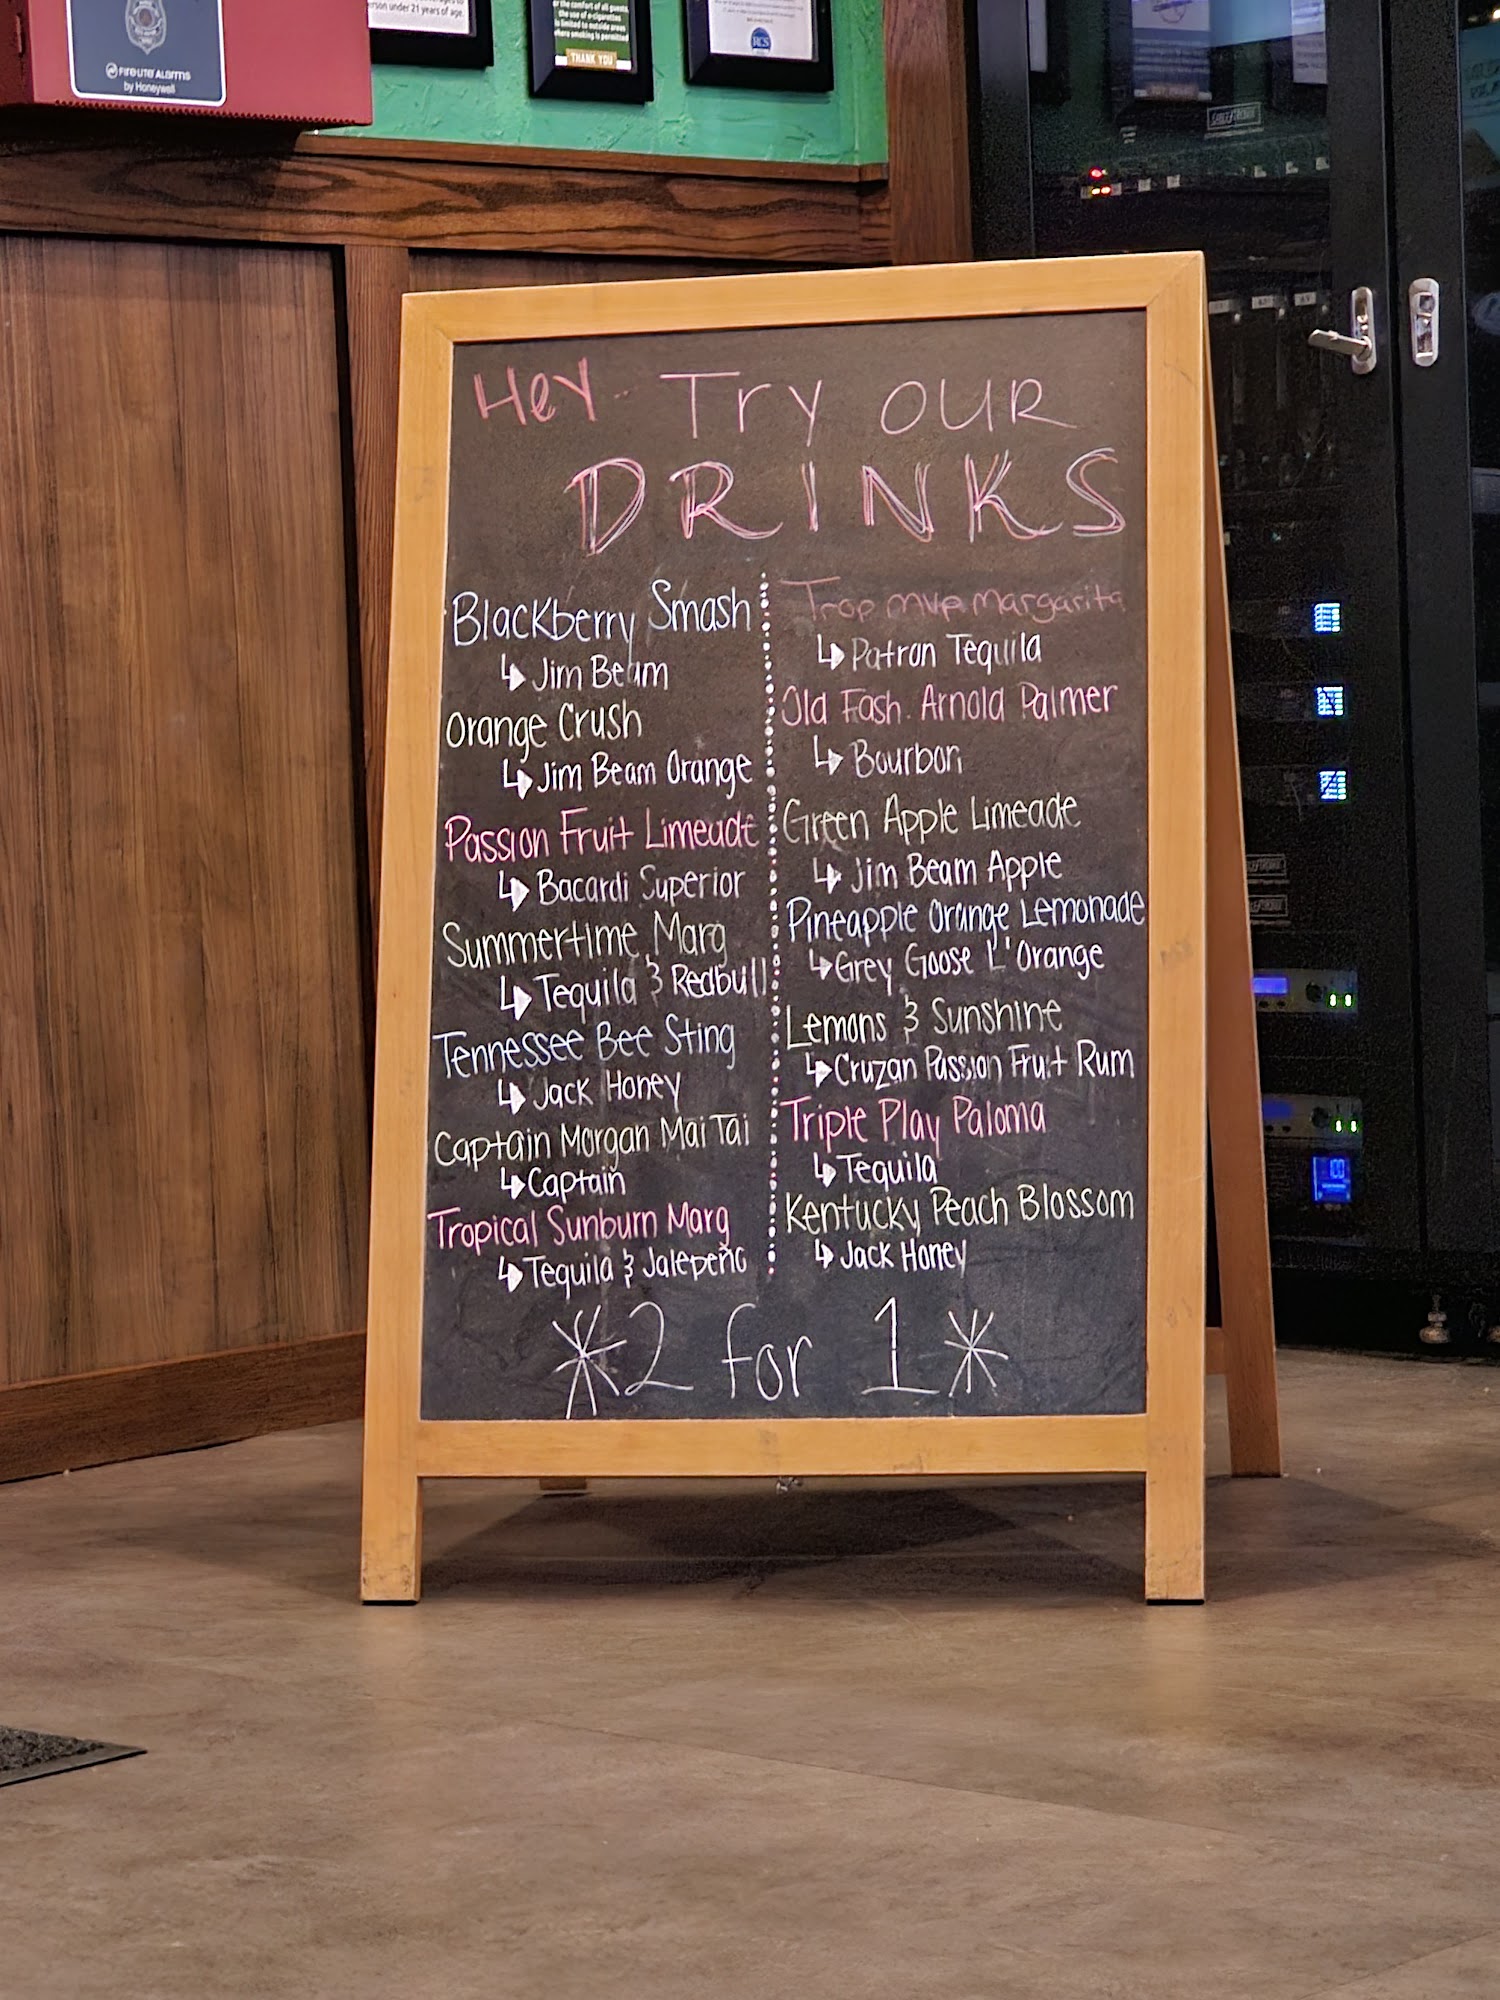 person under 21 years of age.
the comfort of all guests,
the use of e-cigarettes
is limited to outside areas
where smoking is permitted
THANK YOU
RCS
FIRE-LITE ALARMS
by Honeywell
Hey Try our
DRINKS
Blackberry Smash
Jim Beam
Orange Crush
Jim Beam Orange
Passion Fruit Limeade
Bacardi Superior
Summertime Marg
Tequila & Redbull
Tennessee Bee Sting
Jack Honey
Captain Morgan Mai Tai
Captain
Tropical Sunburn Marg
Tequila & Jalepeño
Trop mvp Margarita
Patron Tequila
Old Fash. Arnold Palmer
Bourbon
Green Apple Limeade
Jim Beam Apple
Pineapple Orange Lemonade
Grey Goose L'Orange
Lemons & Sunshine
Cruzan Passion Fruit Rum
Triple Play Paloma
Tequila
Kentucky Peach Blossom
Jack Honey
*2 for 1*